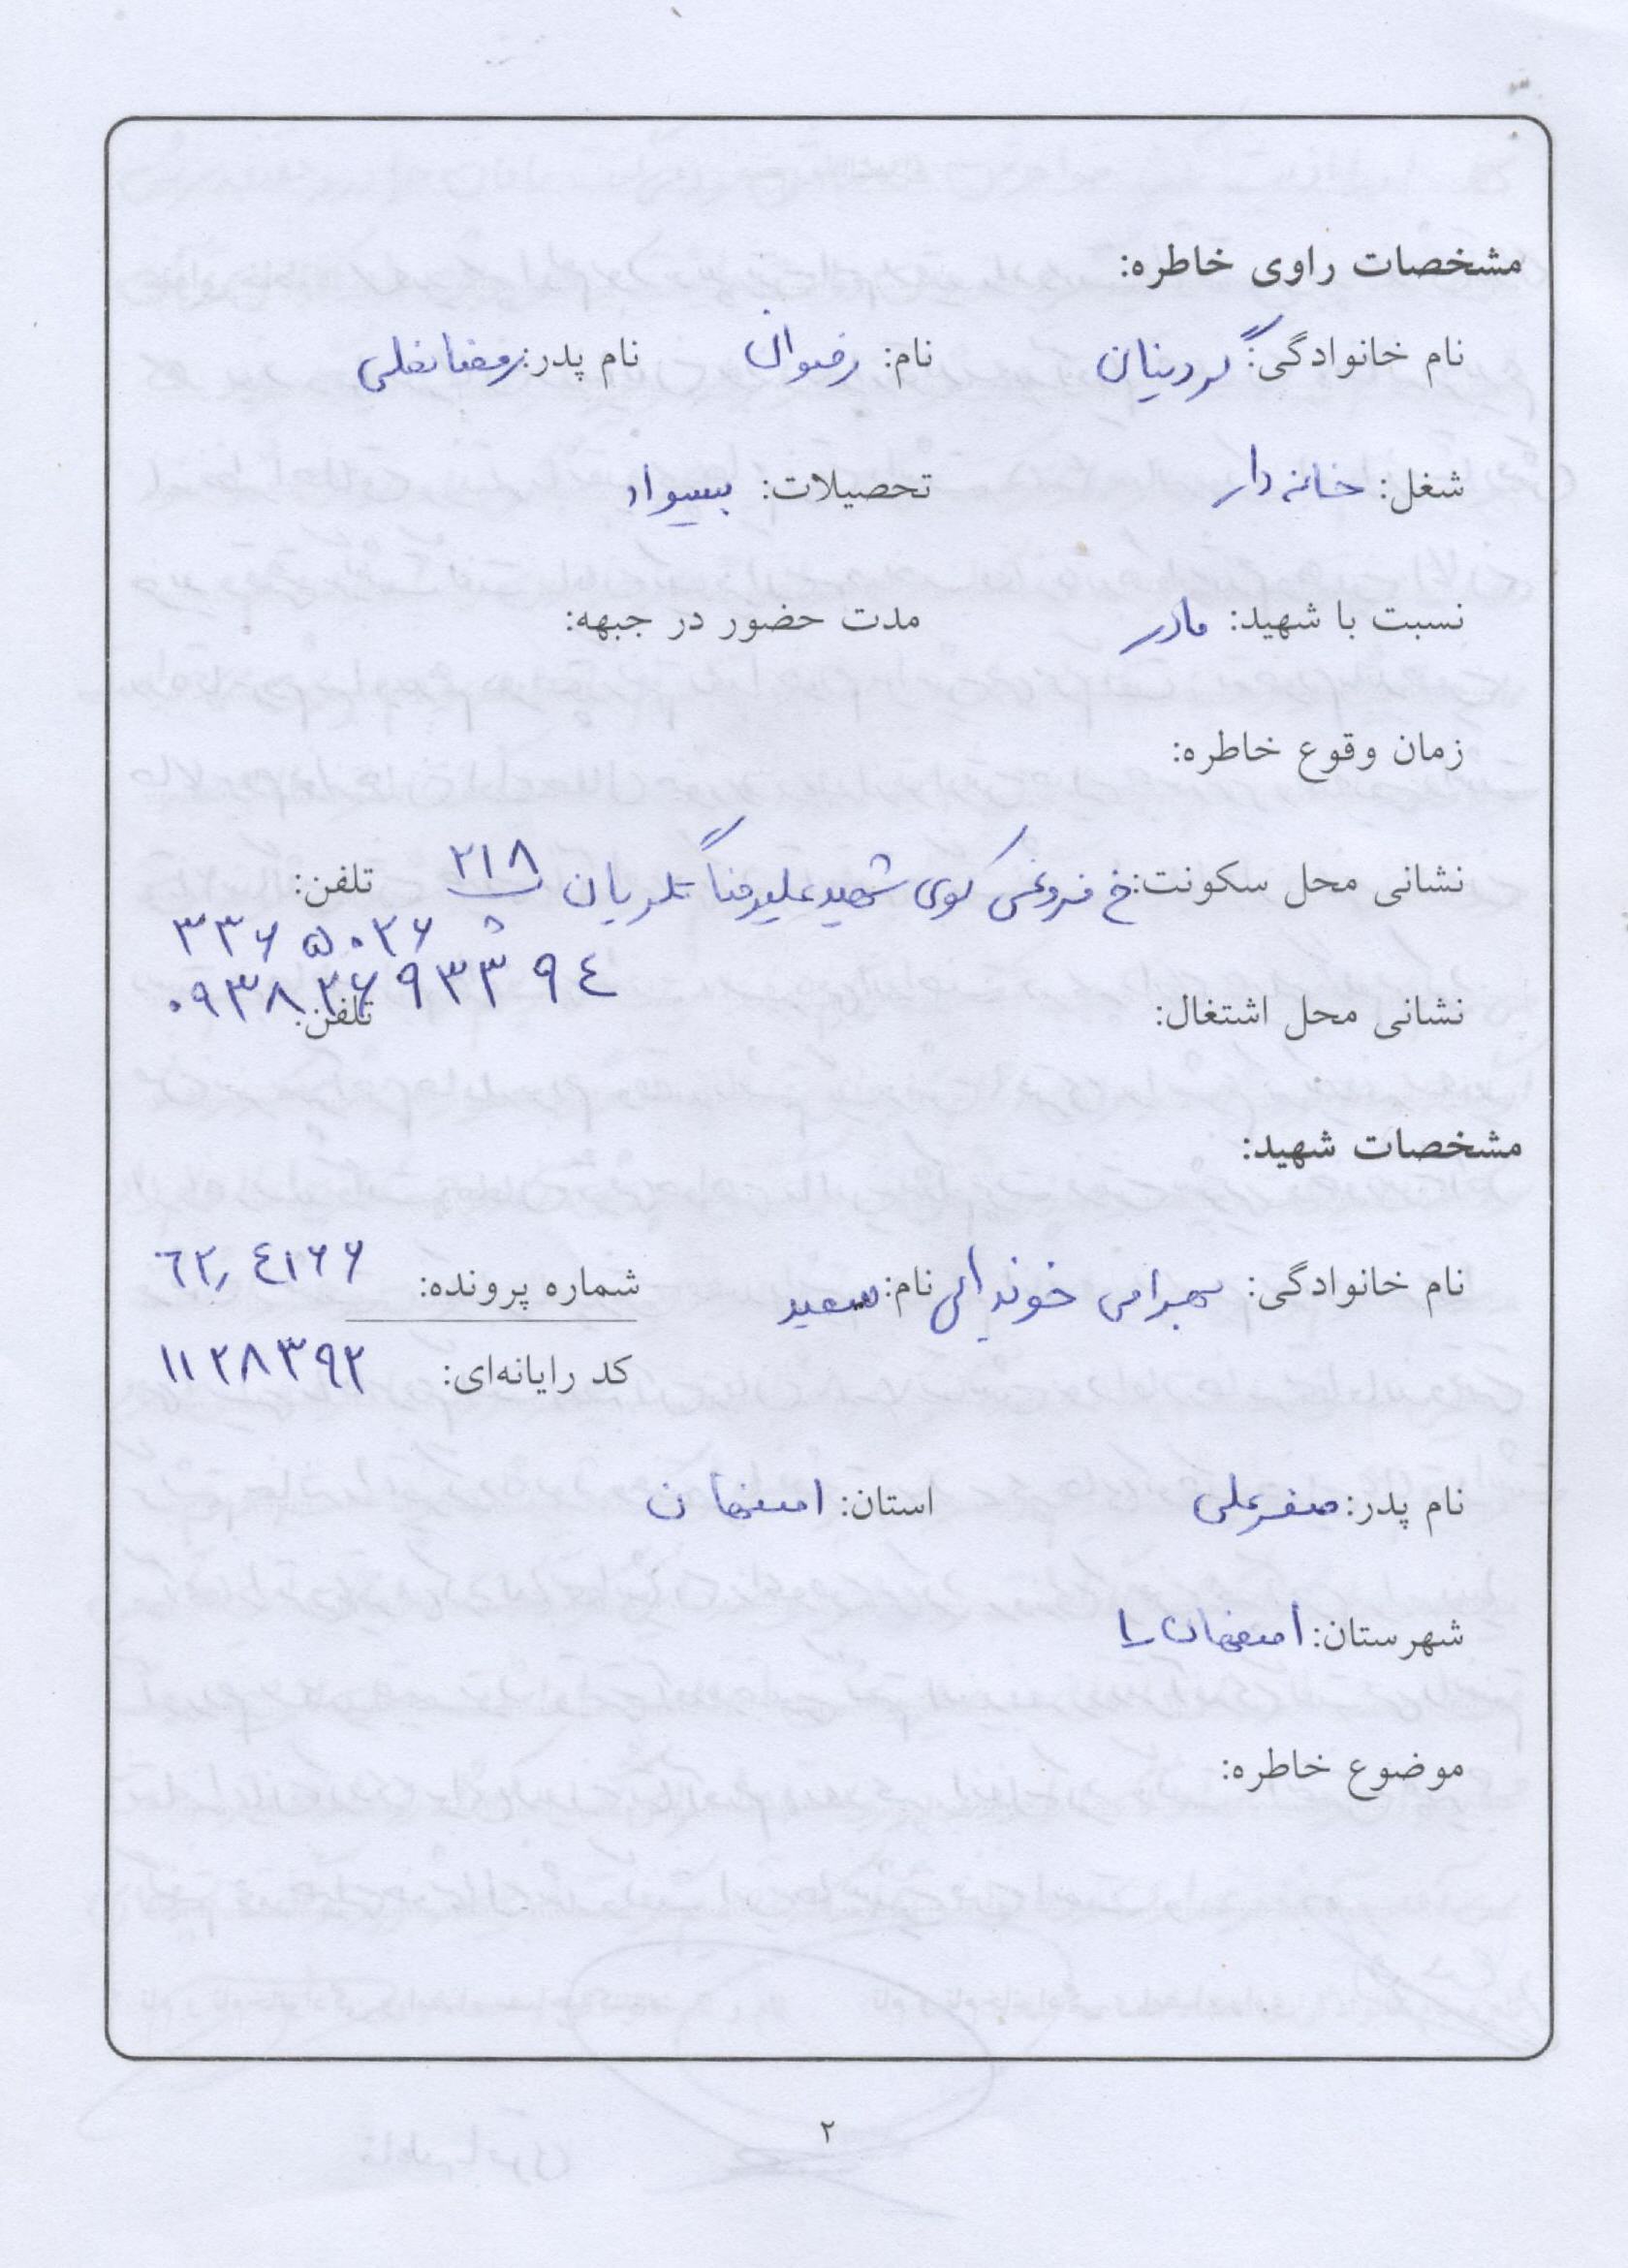 مشخصات راوی خاطره:
نام خانوادگی: گردنیان نام: رضوان نام پدر: رمضانعلی
شغل: خانه دار تحصیلات: بیسواد
نسبت با شهید: مادر مدت حضور در جبهه:
زمان وقوع خاطره:
نشانی محل سکونت: خ فروغی کوی شهید علیرضا پ ۲۱۸ تلفن:
۳۳۶۵۰۲۶
۰۹۳۸۲۶۹۳۳۹۴
نشانی محل اشتغال: تلفن:
مشخصات شهید:
نام خانوادگی: بهرامی خوندابی نام: سعید شماره پرونده: ۶۲٫۴۱۶۶
کد رایانه‌ای: ۱۱۲۸۳۹۲
نام پدر: صفرعلی استان: اصفهان
شهرستان: اصفهان ۱
موضوع خاطره:
۲